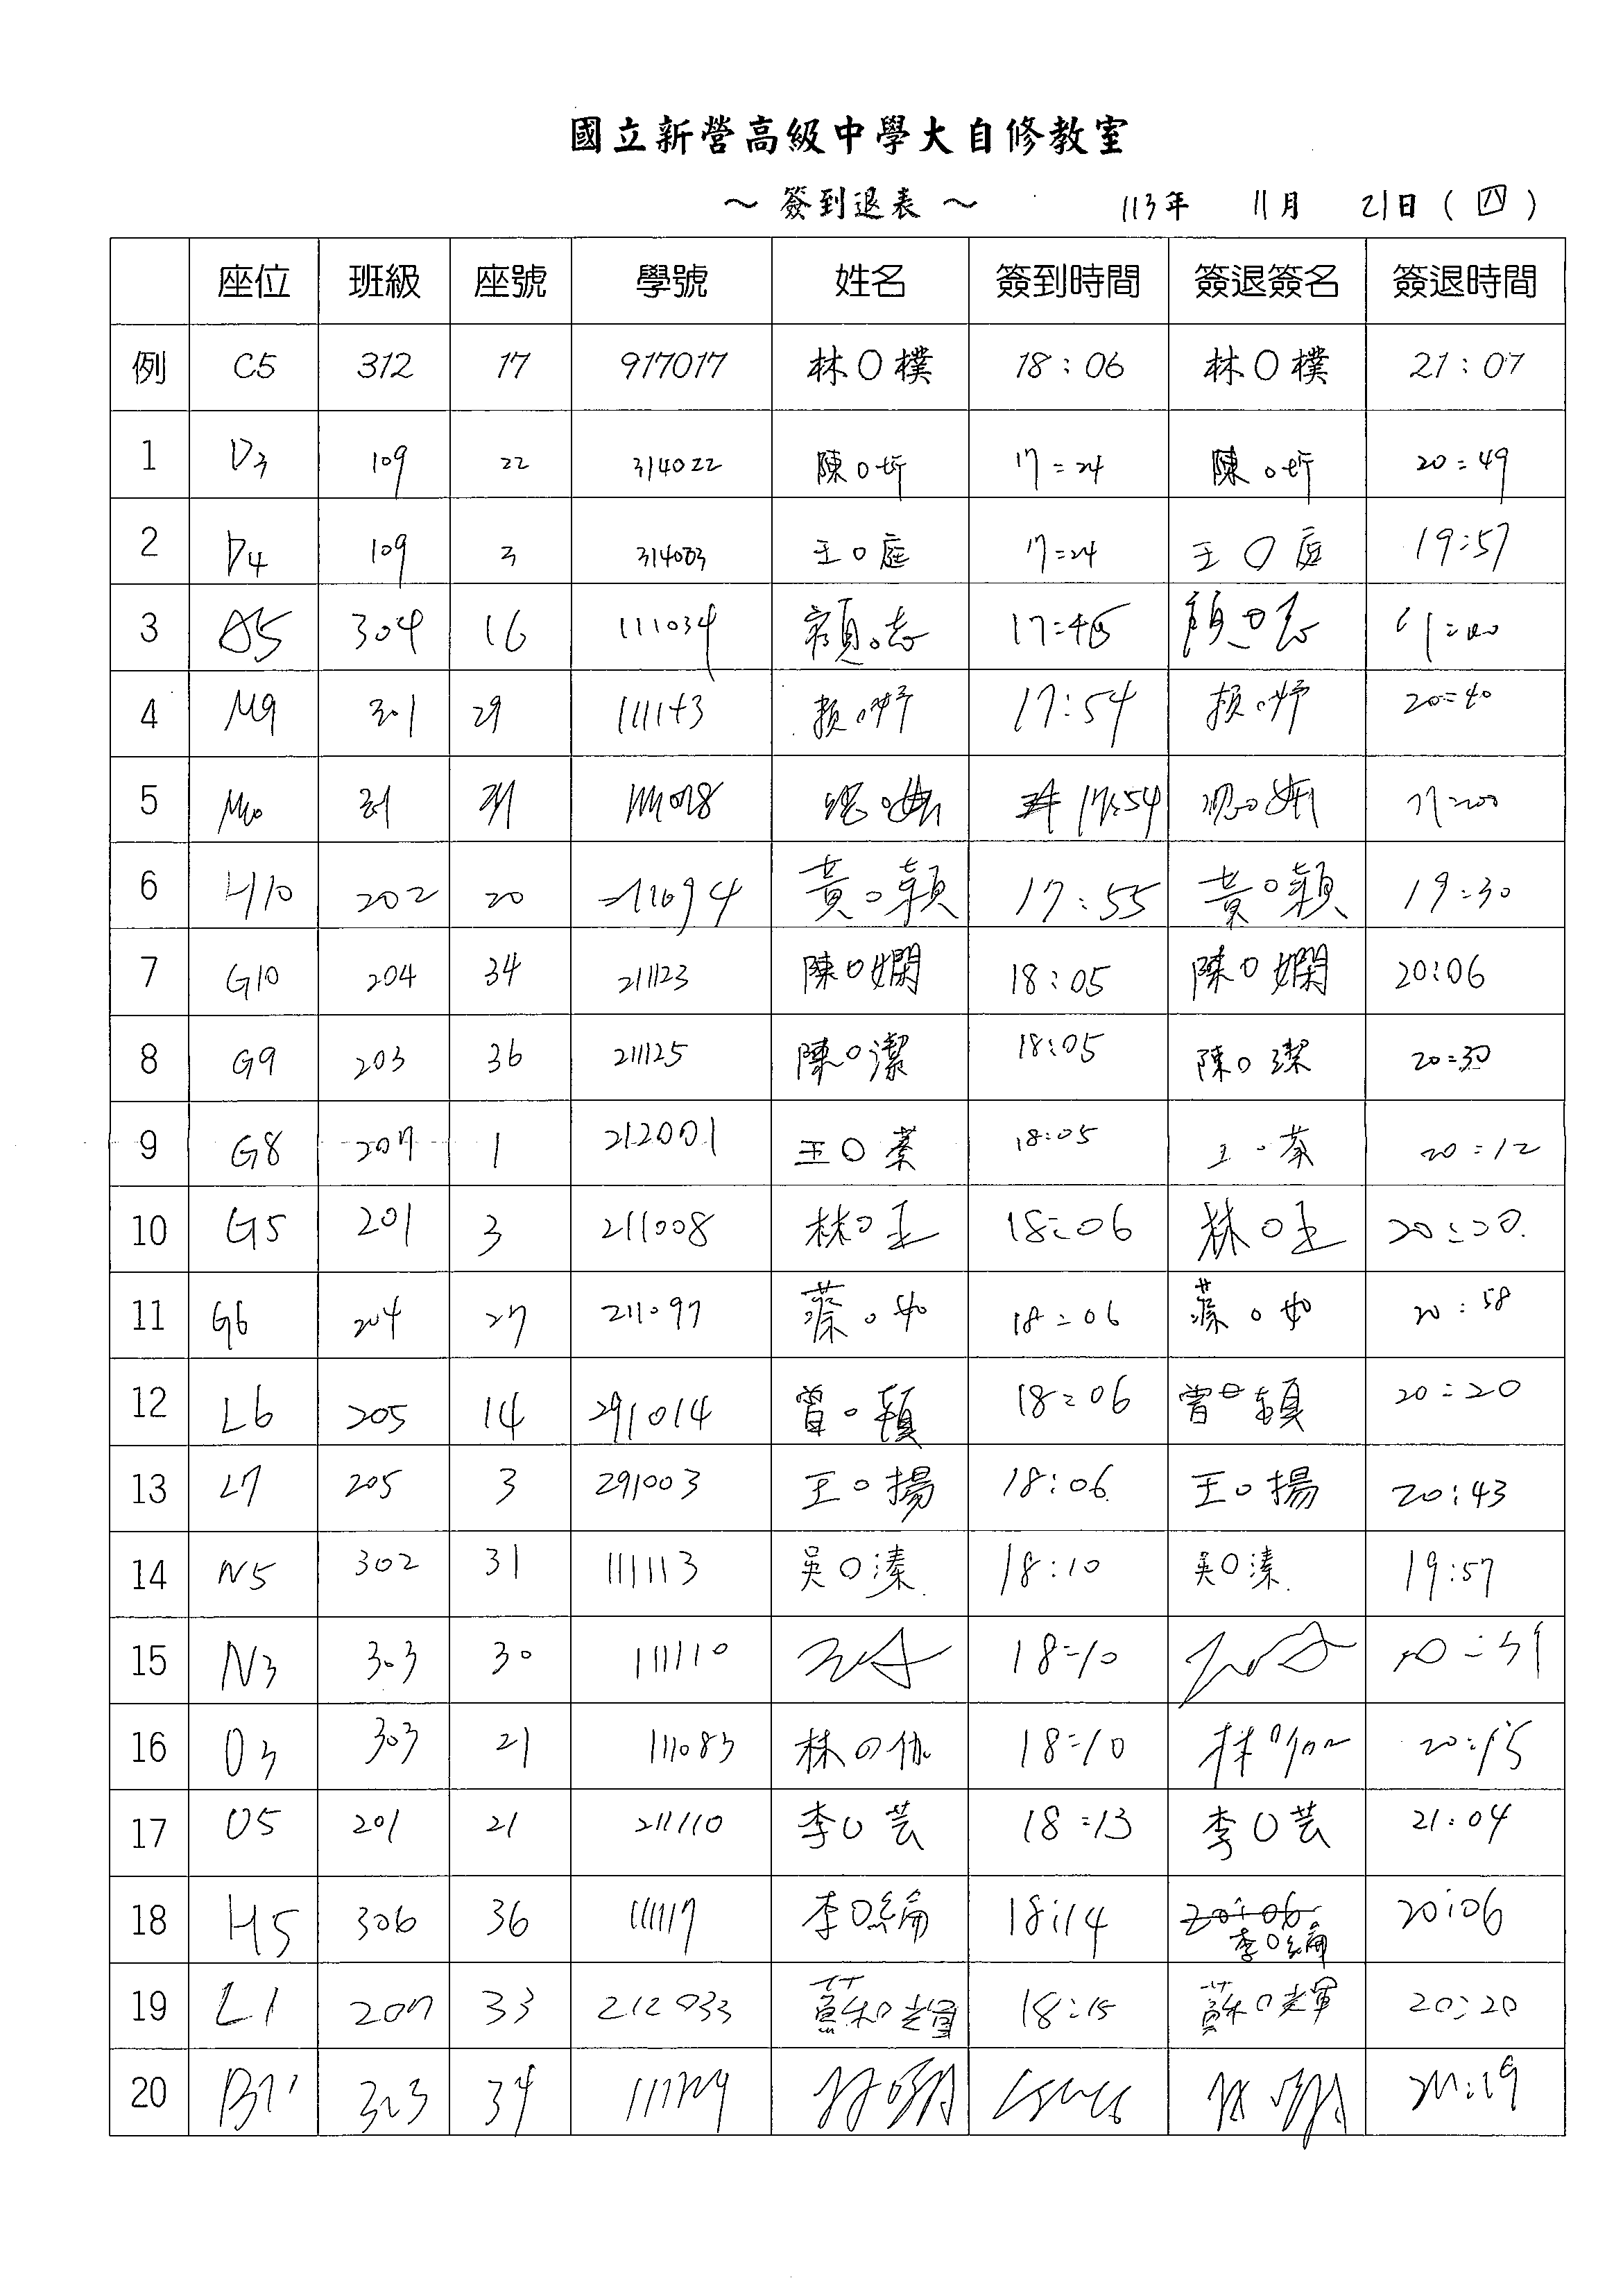 國立新營高級中學大自修教室
～ 簽到退表 ～ 113年 11月 21日 ( 四 )
座位 班級 座號 學號 姓名 簽到時間 簽退簽名 簽退時間
例 C5 312 17 917017 林O樸 18:06 林O樸 21:07
1 D3 109 22 314022 陳O圻 17:24 陳O圻 20:49
2 D4 109 3 314003 王O庭 17:24 王O庭 19:57
3 304 16 111034 17:45
4 M9 301 29 111143 17:54 20:40
5 M10 301 31 17:54
6 H10 202 20 211094 黃O穎 17:55 黃O穎 19:30
7 G10 204 34 211123 陳O嫻 18:05 陳O嫻 20:06
8 G9 203 36 211125 陳O潔 18:05 陳O潔 20:30
9 G8 207 1 212001 王O蓁 18:05 王O蓁 20:12
10 G5 201 3 211008 林O 18:06 林O 20:20
11 G6 204 27 211097 蔡O如 18:06 蔡O如 20:58
12 L6 205 14 291014 曾O穎 18:06 曾O穎 20:20
13 L7 205 3 291003 王O揚 18:06 王O揚 20:43
14 N5 302 31 111113 吳O溱 18:10 吳O溱 19:57
15 N3 303 30 111110 18:10
16 O3 303 21 111083 林O伽 18:10 林O 20:15
17 O5 201 21 211110 李O芸 18:13 李O芸 21:04
18 H5 306 36 111117 李O綸 18:14 20:06 李O綸 20:06
19 L1 207 33 212033 蘇O輝 18:15 蘇O輝 20:20
20 303 34